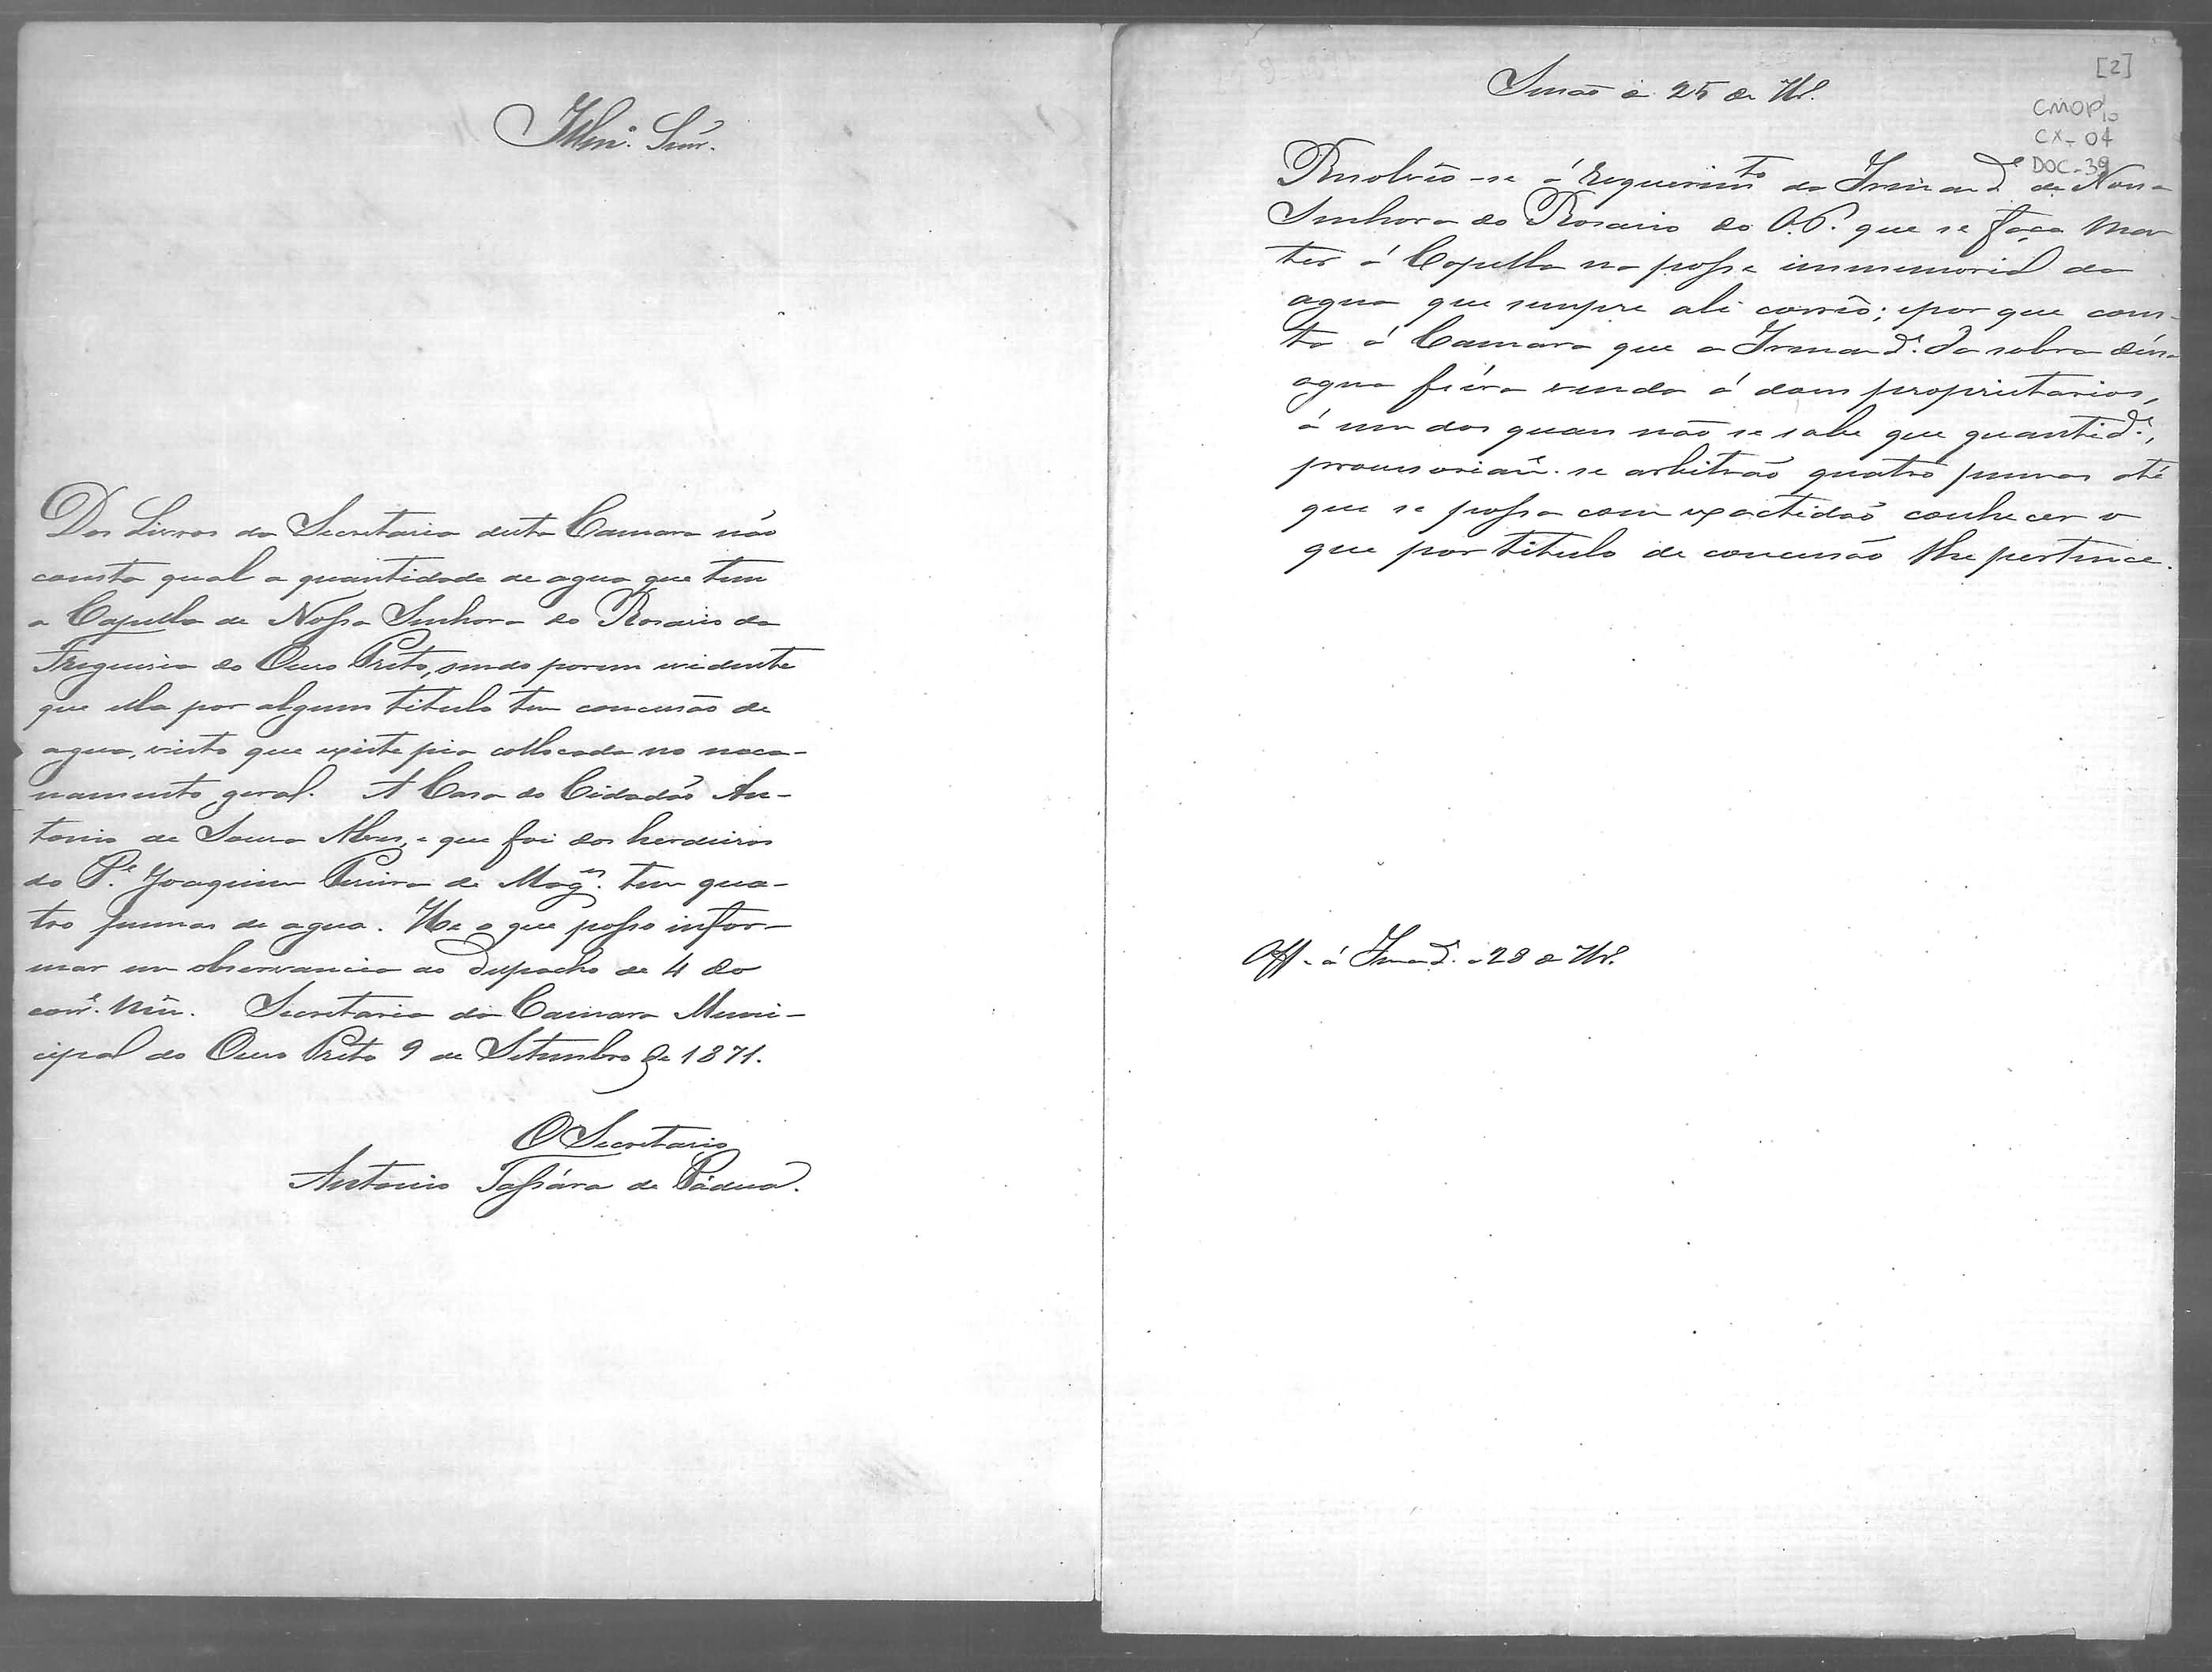 Illmº. Snr.
Dos Livros da Secretaria desta Camara não
consta qual a quantidade de agua que tem
a Capella de Nossa Senhora do Rosario da
Freguesia do Ouro Preto, sendo porem evidente
que ella por algum titulo tem concessão de
agua, visto que existe pia collocada no
namento geral. A Casa do Cidadão An-
tonio de Souza Alves, e que foi dos herdeiros
do Pe. Joaquim Pereira de Mages. tem qua-
tro pennas de agua. He o que posso infor-
mar em observancia ao Despacho de 4 do
corre. Secretaria da Camara Muni-
cipal do Ouro Preto 9 de Setembro de 1871.
O Secretario
Antonio Tassára de Pádua.
[2]
Sessão a 25 de
CMOP
CX- 04
DOC-39
Resolveo-se á requerimto da Irmande de Nossa
Senhora do Rosario do O.P. que se faça man
ter á Capella na posse immemorial da
agua que sempre ali correo; e por que cons-
ta á Camara que a Irmande. da sobra
agua fizera venda á dous proprietarios,
á um dos quaes não se sabe que quantide.,
se arbitrão quatro pennas até
que se possa com exactidão conhecer o
que por titulo de concessão lhe pertence.
Off. á Irmande. a 28 de